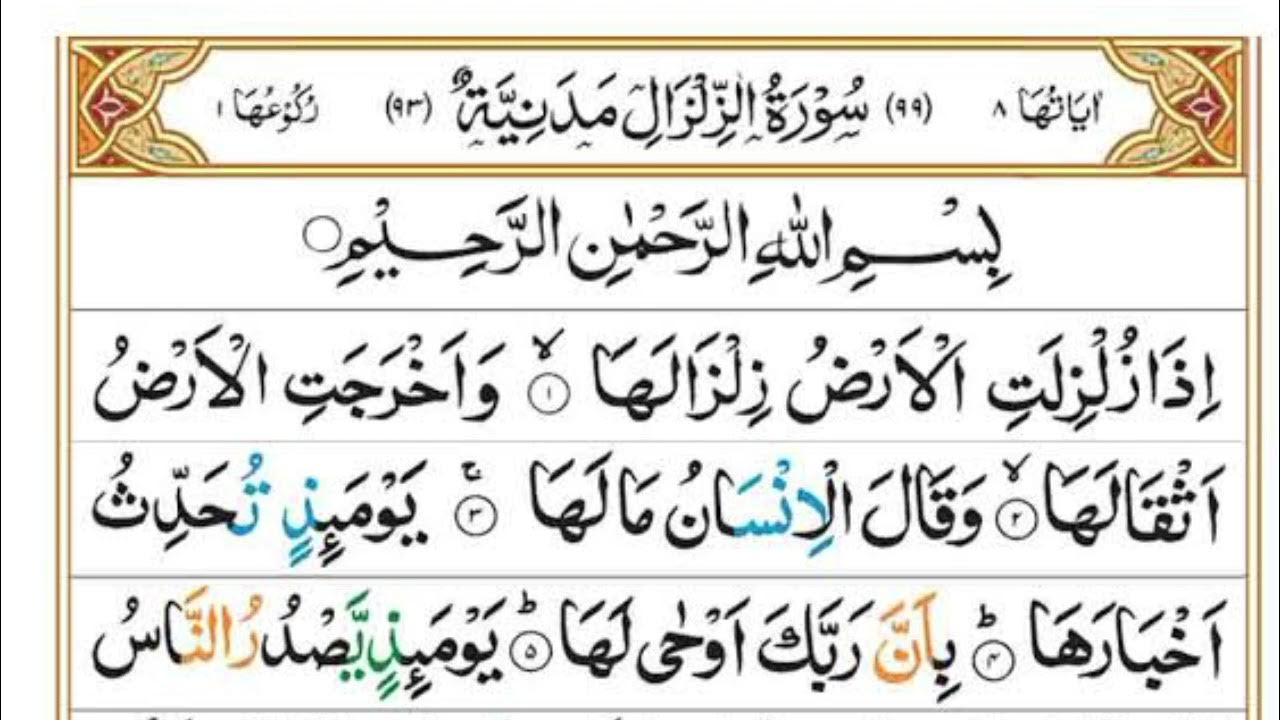 اٰيَاتُهَا ٨ (٩٩) سُوْرَةُ الزِّلْزَالِ مَدَنِيَّةٌ (٩٣) رُكُوْعُهَا ١
بِسْمِ اللّٰهِ الرَّحْمٰنِ الرَّحِيْمِ
اِذَا زُلْزِلَتِ الْاَرْضُ زِلْزَالَهَا ۙ﴿١﴾ وَاَخْرَجَتِ الْاَرْضُ
اَثْقَالَهَا ۙ﴿٢﴾ وَقَالَ الْاِنْسَانُ مَا لَهَا ۚ﴿٣﴾ يَوْمَىِٕذٍ تُحَدِّثُ
اَخْبَارَهَا ؕ﴿٤﴾ بِاَنَّ رَبَّكَ اَوْحٰى لَهَا ؕ﴿٥﴾ يَوْمَىِٕذٍ يَّصْدُرُ النَّاسُ